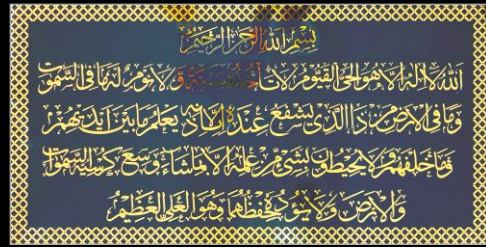 بسم الله الرحمن الرحيم
الله لا إله إلا هو الحي القيوم لا تأخذه سنة ولا نوم له ما في السموت
وما في الأرض من ذا الذي يشفع عنده إلا بإذنه يعلم ما بين أيديهم
وما خلفهم ولا يحيطون بشيء من علمه إلا بما شاء وسع كرسيه السموت
والأرض ولا يئوده حفظهما وهو العلي العظيم